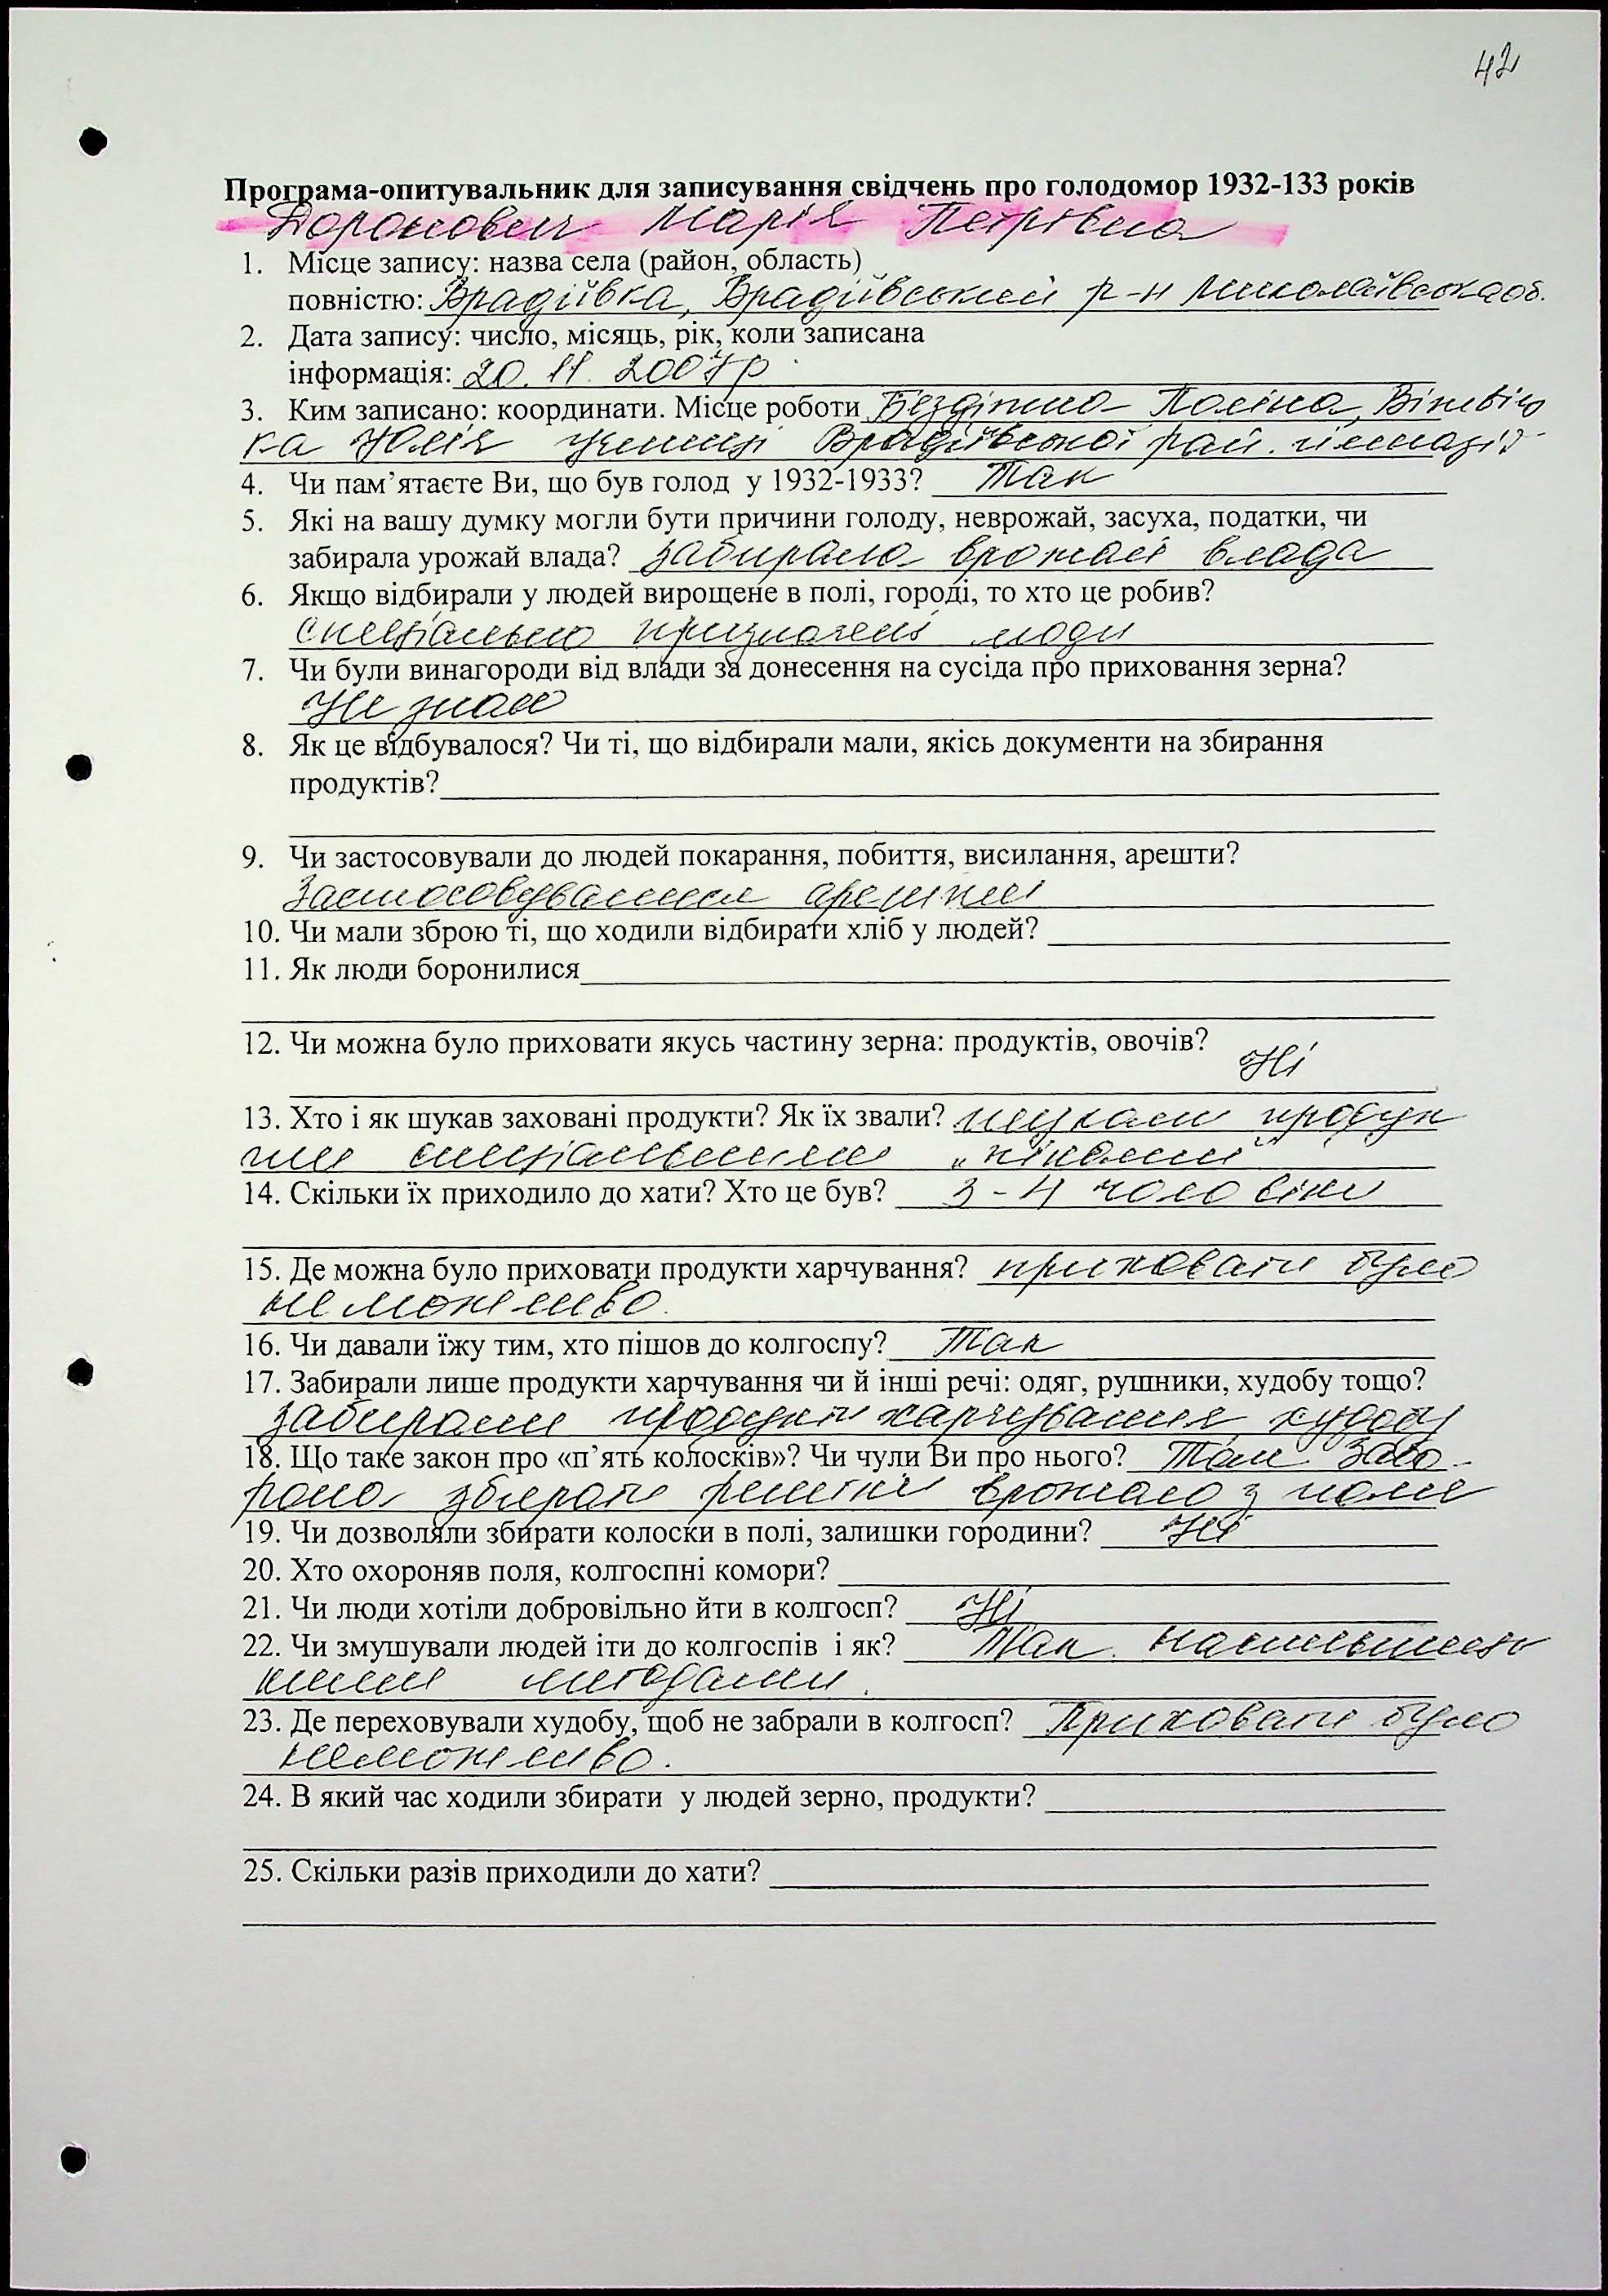 42
Програма-опитувальник для записування свідчень про голодомор 1932-133 років
Доронович Марія Петрівна
1. Місце запису: назва села (район, область)
повністю: Врадіївка, Врадіївський р-н Миколаївська об.
2. Дата запису: число, місяць, рік, коли записана
інформація: 20. 11. 2007р
3. Ким записано: координати. Місце роботи Поліна,
ка Юлія учениці Врадіївської рай. гімназії
4. Чи пам’ятаєте Ви, що був голод у 1932-1933? Так
5. Які на вашу думку могли бути причини голоду, неврожай, засуха, податки, чи
забирала урожай влада? забирала врожай влада
6. Якщо відбирали у людей вирощене в полі, городі, то хто це робив?
спеціально призначені люди
7. Чи були винагороди від влади за донесення на сусіда про приховання зерна?
Не знаю
8. Як це відбувалося? Чи ті, що відбирали мали, якісь документи на збирання
продуктів?
9. Чи застосовували до людей покарання, побиття, висилання, арешти?
Застосовувалися арешти
10. Чи мали зброю ті, що ходили відбирати хліб у людей?
11. Як люди боронилися
12. Чи можна було приховати якусь частину зерна: продуктів, овочів?
Ні
13. Хто і як шукав заховані продукти? Як їх звали? шукали продук
ти спеціальними
14. Скільки їх приходило до хати? Хто це був? 3-4 чоловіки
15. Де можна було приховати продукти харчування? приховати було
неможливо.
16. Чи давали їжу тим, хто пішов до колгоспу? Так
17. Забирали лише продукти харчування чи й інші речі: одяг, рушники, худобу тощо?
забирали продукти харчування, худобу
18. Що таке закон про «п’ять колосків»? Чи чули Ви про нього? Так. Забо-
рона збирати рештки врожаю з поля
19. Чи дозволяли збирати колоски в полі, залишки городини? Ні
20. Хто охороняв поля, колгоспні комори?
21. Чи люди хотіли добровільно йти в колгосп? Ні
22. Чи змушували людей іти до колгоспів і як? Так. Насильниць
кими методами.
23. Де переховували худобу, щоб не забрали в колгосп? Приховати було
неможливо.
24. В який час ходили збирати у людей зерно, продукти?
25. Скільки разів приходили до хати?